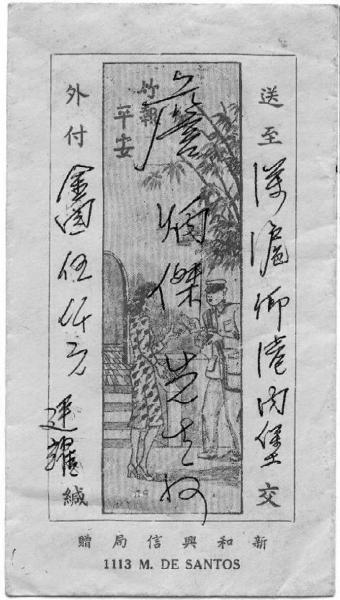 送至深滬港內堡交
傑先生
竹報
平安
外付金圓伍仟元
耀緘
新和興信局贈
1113 M. DE SANTOS